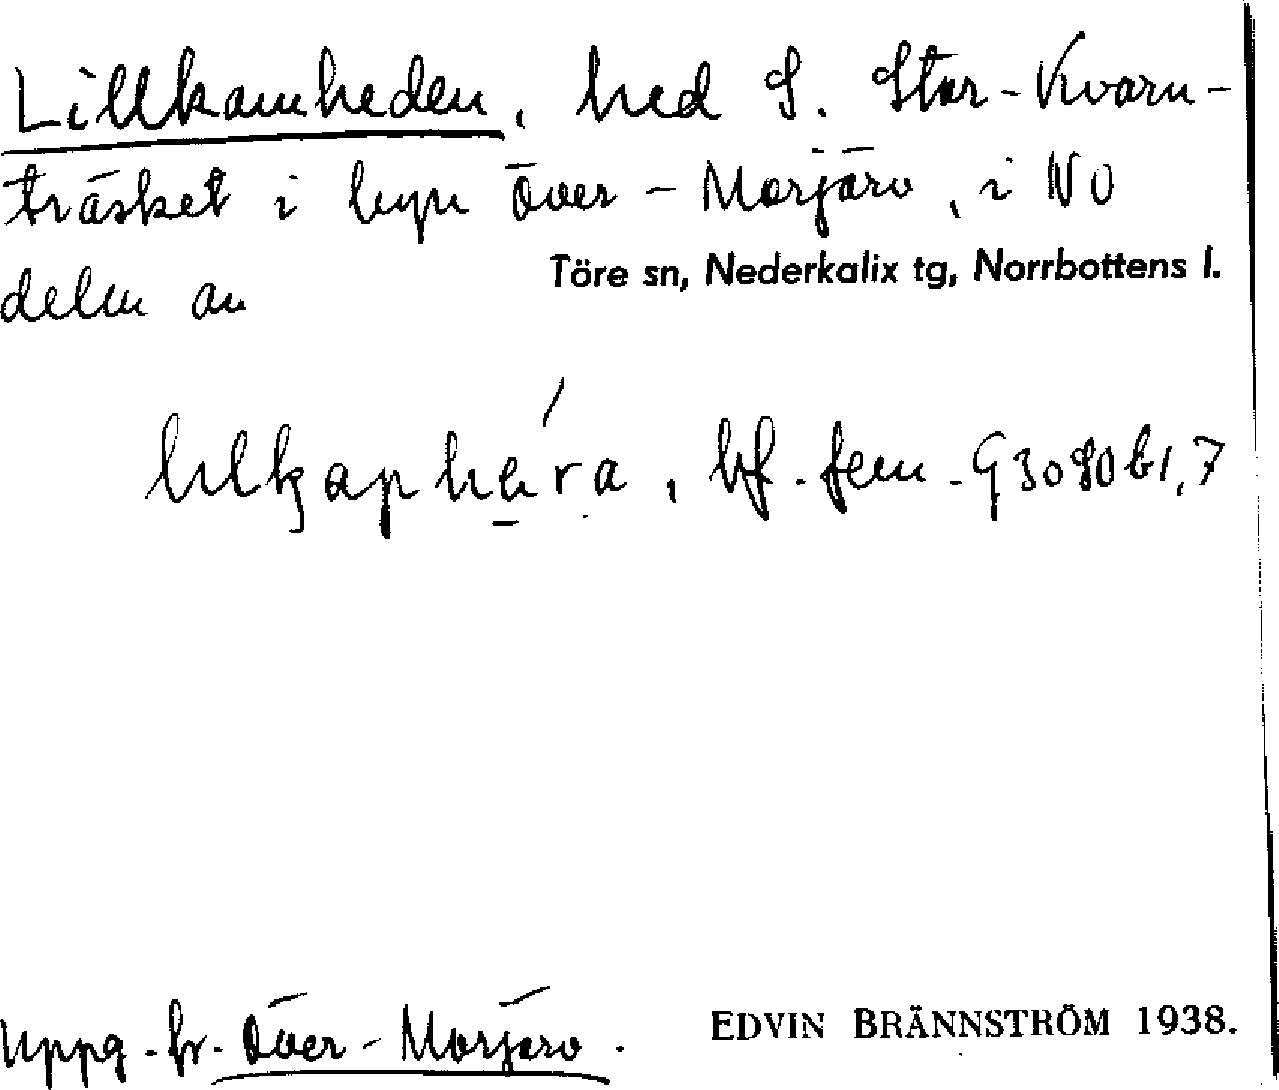 Lillkamheden, hed S. Stor-Kvarn-
träsket i byn Över-Morjärv, i NO
delen av
Töre sn, Nederkalix tg, Norrbottens l.
bf. fem. G3080b1,7
Uppg. fr. Över-Morjärv.
EDVIN BRÄNNSTRÖM 1938.